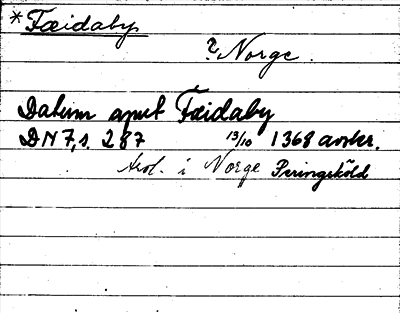 *Fæidaby
? Norge.
Datum aput Fæidaby
DN 7, s. 287 13/10 1368 avskr.
trol. i Norge Peringsköld